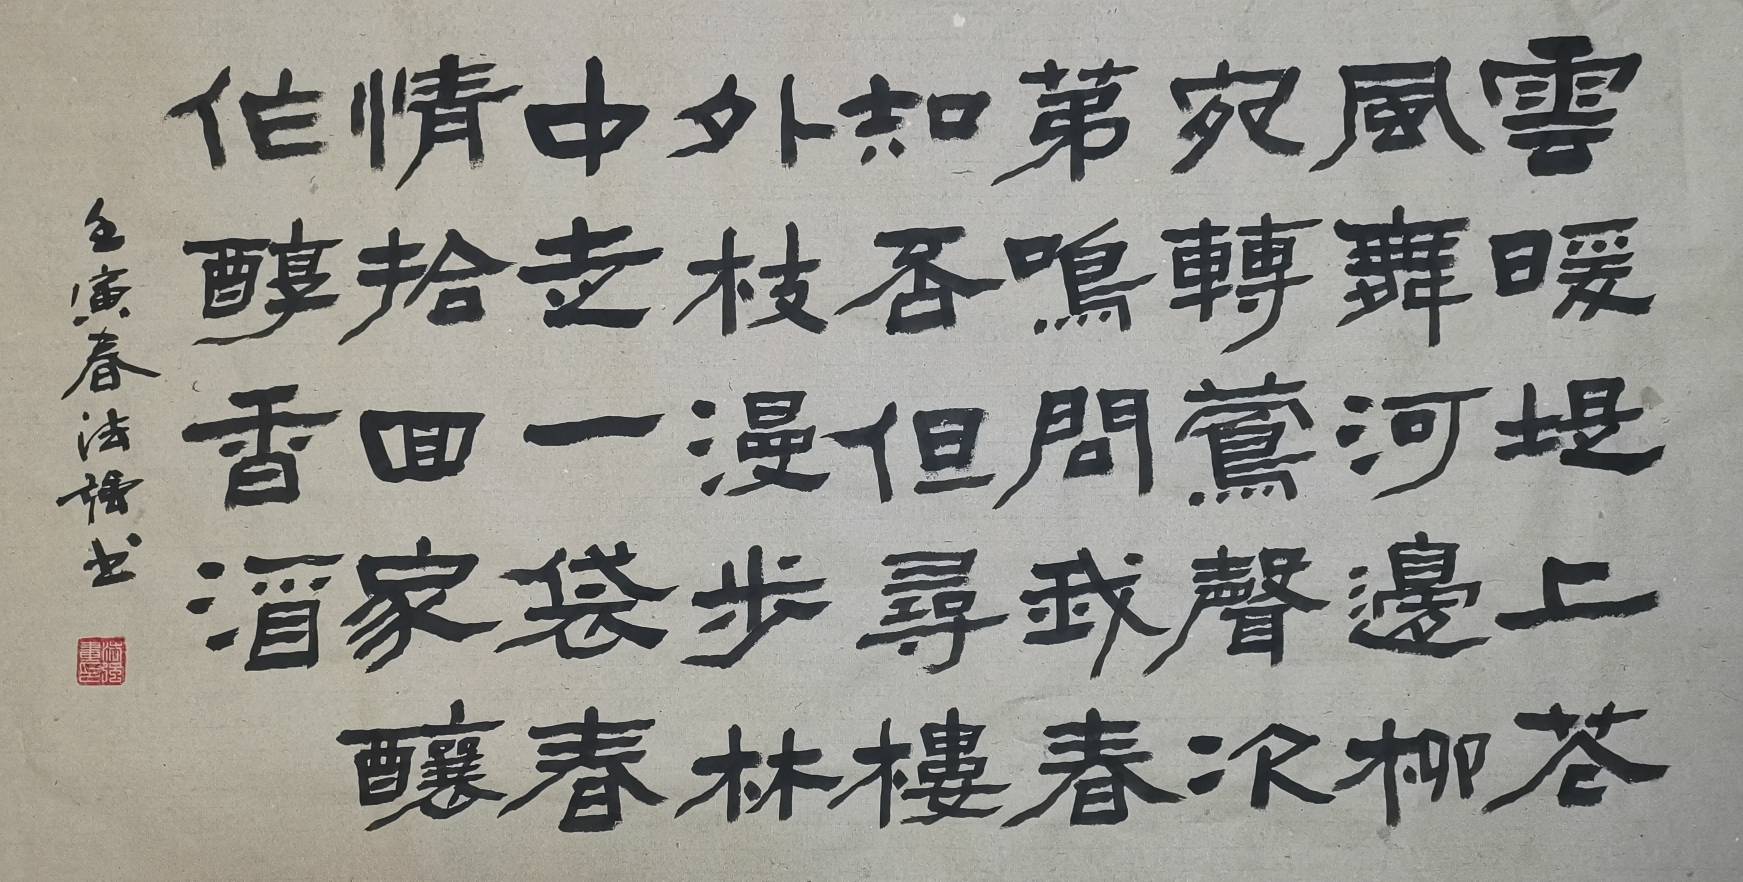 雲暖堤上花
風舞河邊柳
宛轉鶯聲次
第鳴問我春
知否但尋樓
外枝漫步林
中走一袋春
情拾回家釀
作醇香酒
壬寅春法強书